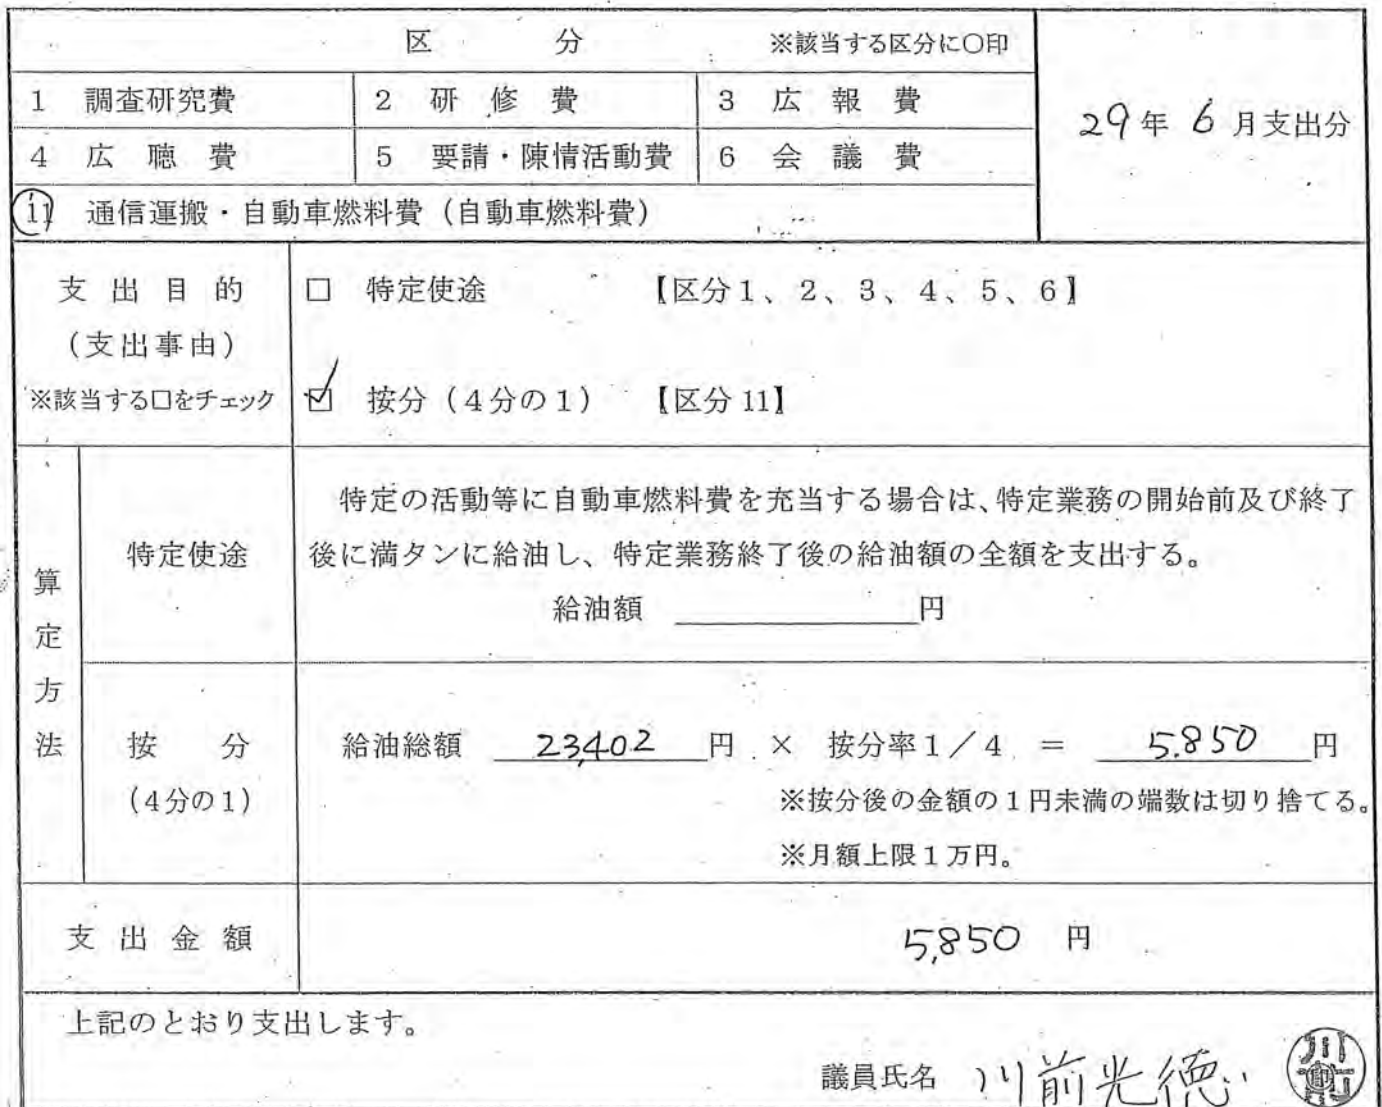 区 分 ※該当する区分に○印
1 調査研究費 2 研修費 3 広報費
29年 6月支出分
4 広聴費 5 要請・陳情活動費 6 会議費
11 通信運搬・自動車燃料費（自動車燃料費）
支出目的 □ 特定使途 【区分1、2、3、4、5、6】
（支出事由）
※該当する□をチェック ☑ 按分（4分の1） 【区分11】
算定方法
特定使途
特定の活動等に自動車燃料費を充当する場合は、特定業務の開始前及び終了
後に満タンに給油し、特定業務終了後の給油額の全額を支出する。
給油額 円
按分 給油総額 23,402 円 × 按分率1／4 ＝ 5.850 円
（4分の1） ※按分後の金額の1円未満の端数は切り捨てる。
※月額上限1万円。
支出金額 5,850 円
上記のとおり支出します。
議員氏名 川前光徳